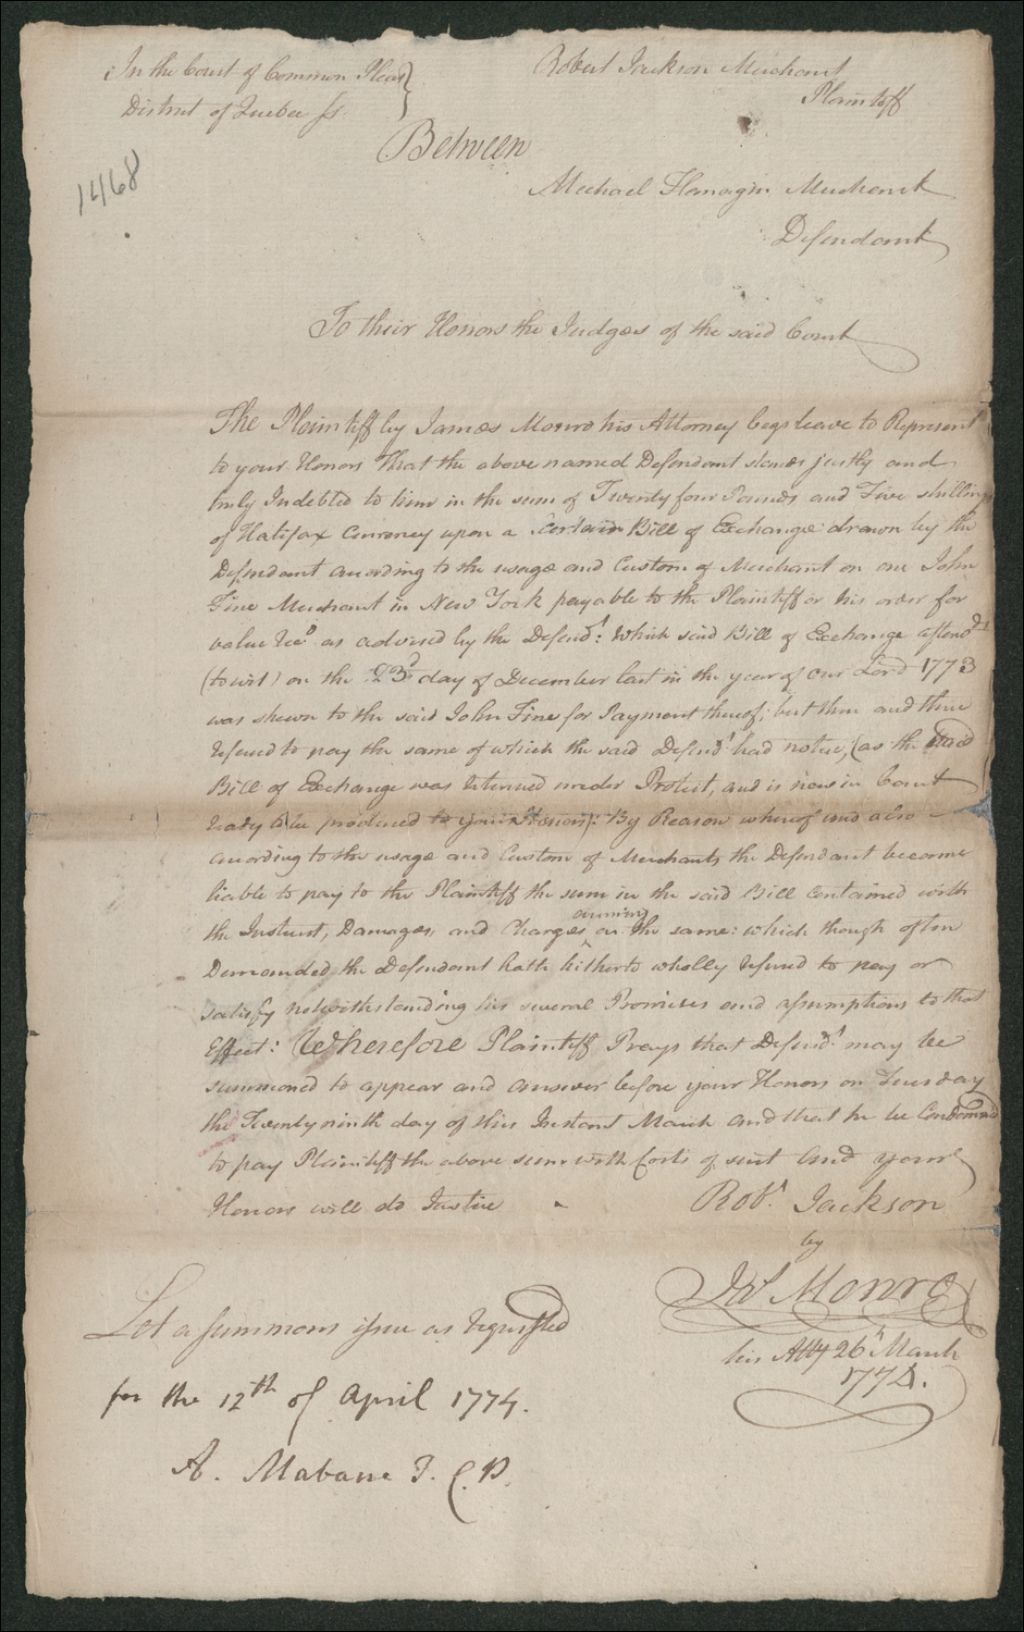 In the Court of Common Pleas }
District of Quebec ss.
Robert Jackson Merchant
Plaintiff
Between
1468
Michael Flanagin Merchant
Defendant
To their Honors the Judges of the said Court
The Plaintiff by James Monro his Attorney begs leave to Represent
to your Honors That the above named Defendant stands justly and
truly Indebted to him in the sum of Twenty four Pounds and Five shillings
of Halifax Currency upon a Certain Bill of Exchange drawn by the
Defendant according to the usage and Custom of Merchant on one John
Fine Merchant in New York payable to the Plaintiff or his order for
value Rec.d as advised by the Defend.t: Which said Bill of Exchange afterw.ds
(to wit) on the 23.d day of December last in the year of our Lord 1773
was shewn to the said John Fine for Payment thereof; but then and there
refused to pay the same of which the said Defend.t had notice, (as the said
Bill of Exchange was returned under Protest, and is now in Court
ready to be produced to your Honors): By Reason whereof and also
according to the usage and Custom of Merchants the Defendant became
liable to pay to the Plaintiff the sum in the said Bill Contained with
the Interest, Damages, and Charges arising on the same: which though often
Demanded the Defendant hath hitherto wholly refused to pay or
satisfy notwithstanding his several Promises and assumptions to that
Effect: Wherefore Plaintiff Prays that Defend.t may be
summoned to appear and answer before your Honors on Tuesday
the Twenty ninth day of this Instant March and that he be Condemned
to pay Plaintiff the above sum with Costs of suit and your
Honors will do Justice
Rob.t Jackson
by
Ja.s Monro
his Atty 26.th March
1774.
Let a summons issue as requested
for the 12th of April 1774.
A. Mabane J. C. P.